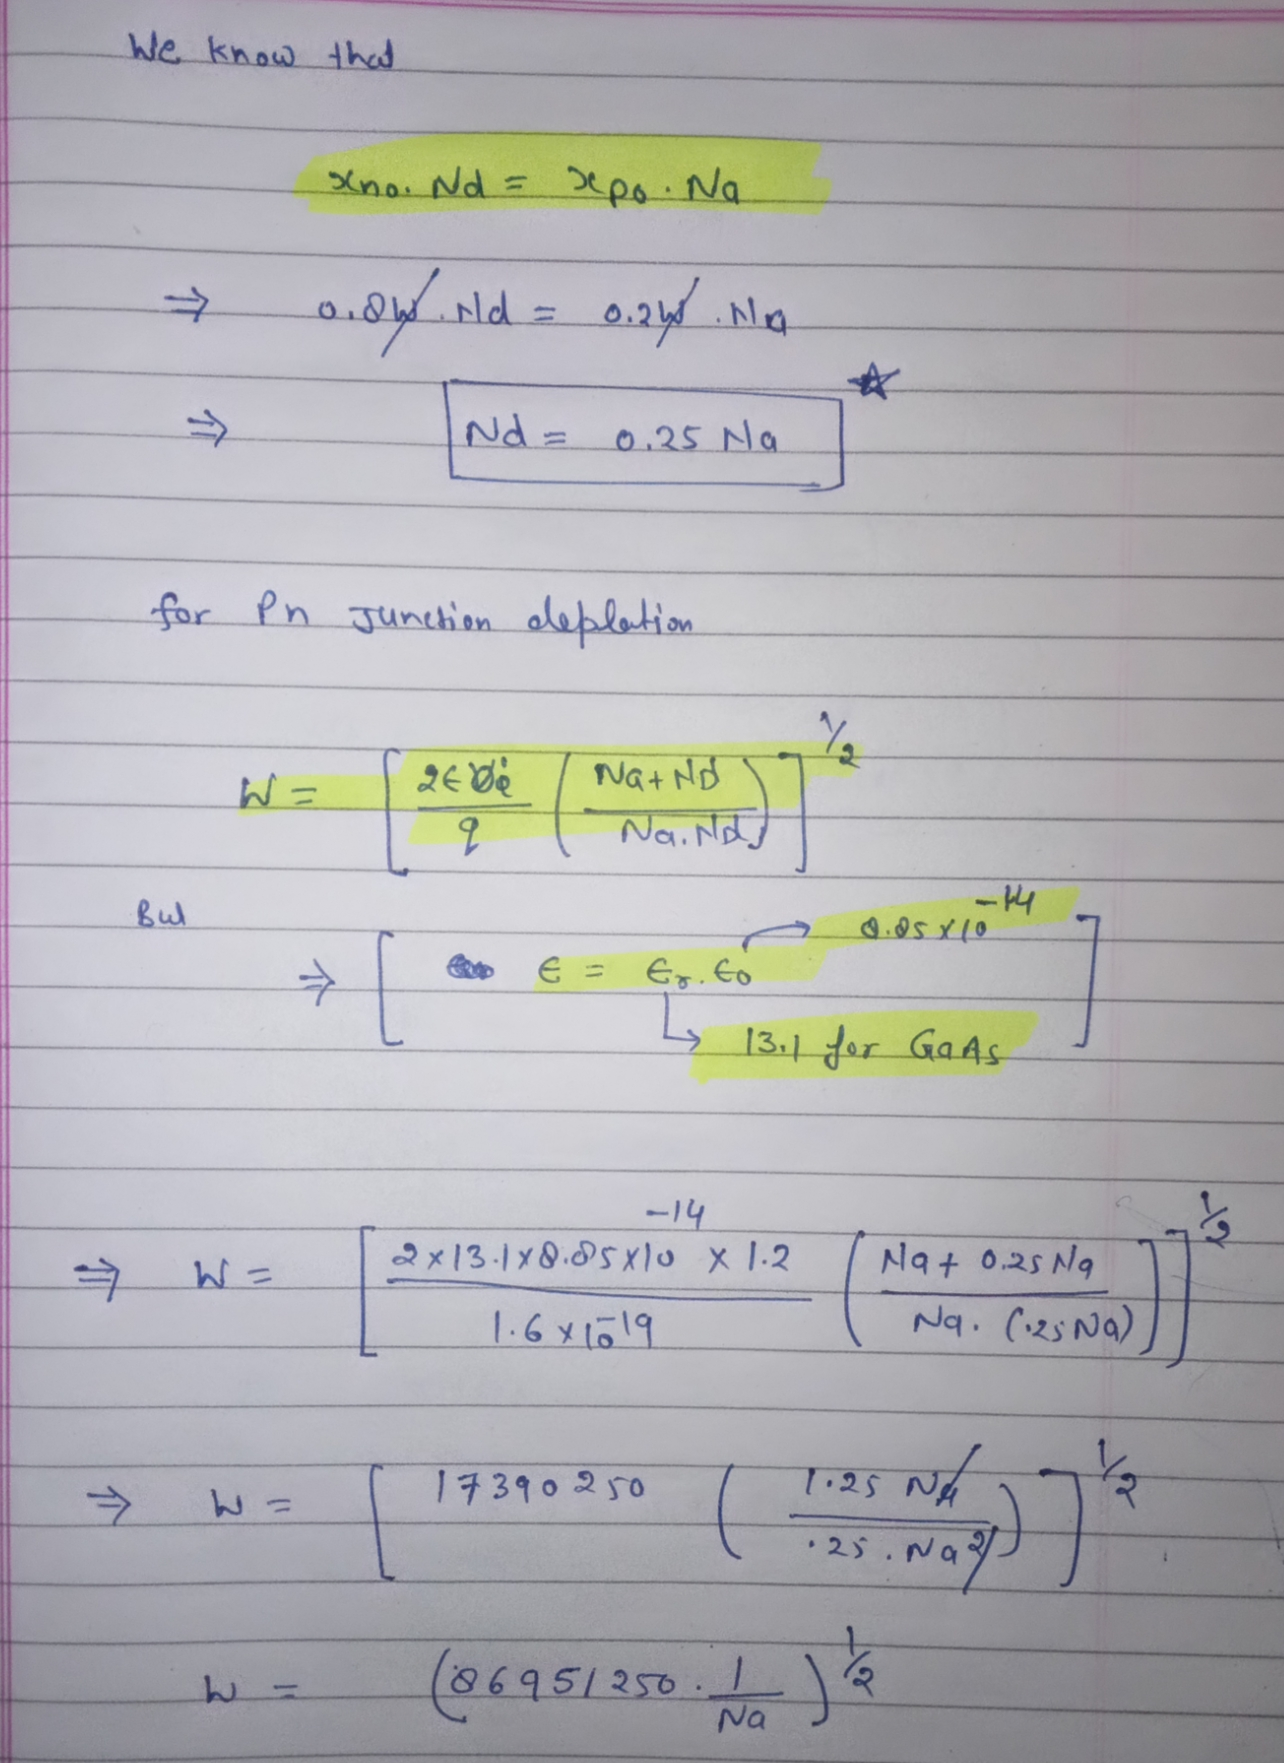 We know that
xno. Nd = xpo. Na
⇒ 0.8W. Nd = 0.2W. Na
⇒ Nd = 0.25 Na ☆
for Pn Junction deplation
W = [ 2ϵ Øi / q ( Na + Nd / Na. Nd ) ]^1/2
But
⇒ [ ϵ = ϵr. ϵo → 8.85 x 10^-14 ]
↳ 13.1 for GaAs
⇒ W = [ 2 x 13.1 x 8.85 x 10^-14 x 1.2 / 1.6 x 10^-19 ( Na + 0.25 Na / Na. (.25 Na) ) ]^1/2
⇒ W = [ 17390250 ( 1.25 Na / .25. Na^2 ) ]^1/2
W = ( 86951250 . 1 / Na )^1/2